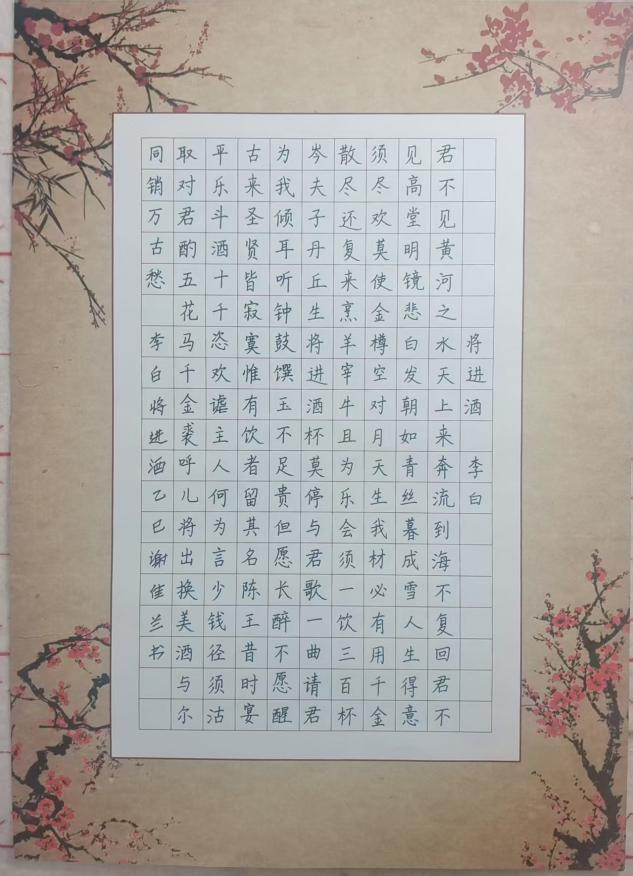 将进酒 李白
君不见黄河之水天上来奔流到海不复回君不
见高堂明镜悲白发朝如青丝暮成雪人生得意
须尽欢莫使金樽空对月天生我材必有用千金
散尽还复来烹羊宰牛且为乐会须一饮三百杯
岑夫子丹丘生将进酒杯莫停与君歌一曲请君
为我倾耳听钟鼓馔玉不足贵但愿长醉不愿醒
古来圣贤皆寂寞惟有饮者留其名陈王昔时宴
平乐斗酒十千恣欢谑主人何为言少钱径须沽
取对君酌五花马千金裘呼儿将出换美酒与尔
同销万古愁 李白将进酒乙巳谢佳兰书